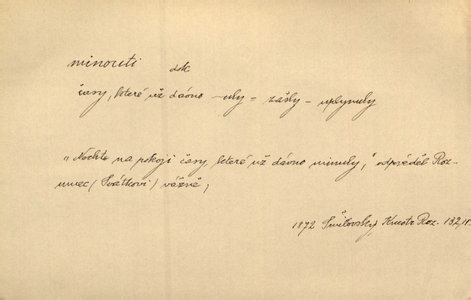 minouti
dok
časy, které už dávno -uly = zašly - uplynuly
„Nechte na pokoji časy, které už dávno minuly,“ odpověděl Roz-
umec (Svátkovi) vážně;
1872 Šmilovský, Kmotr Roz. 132,